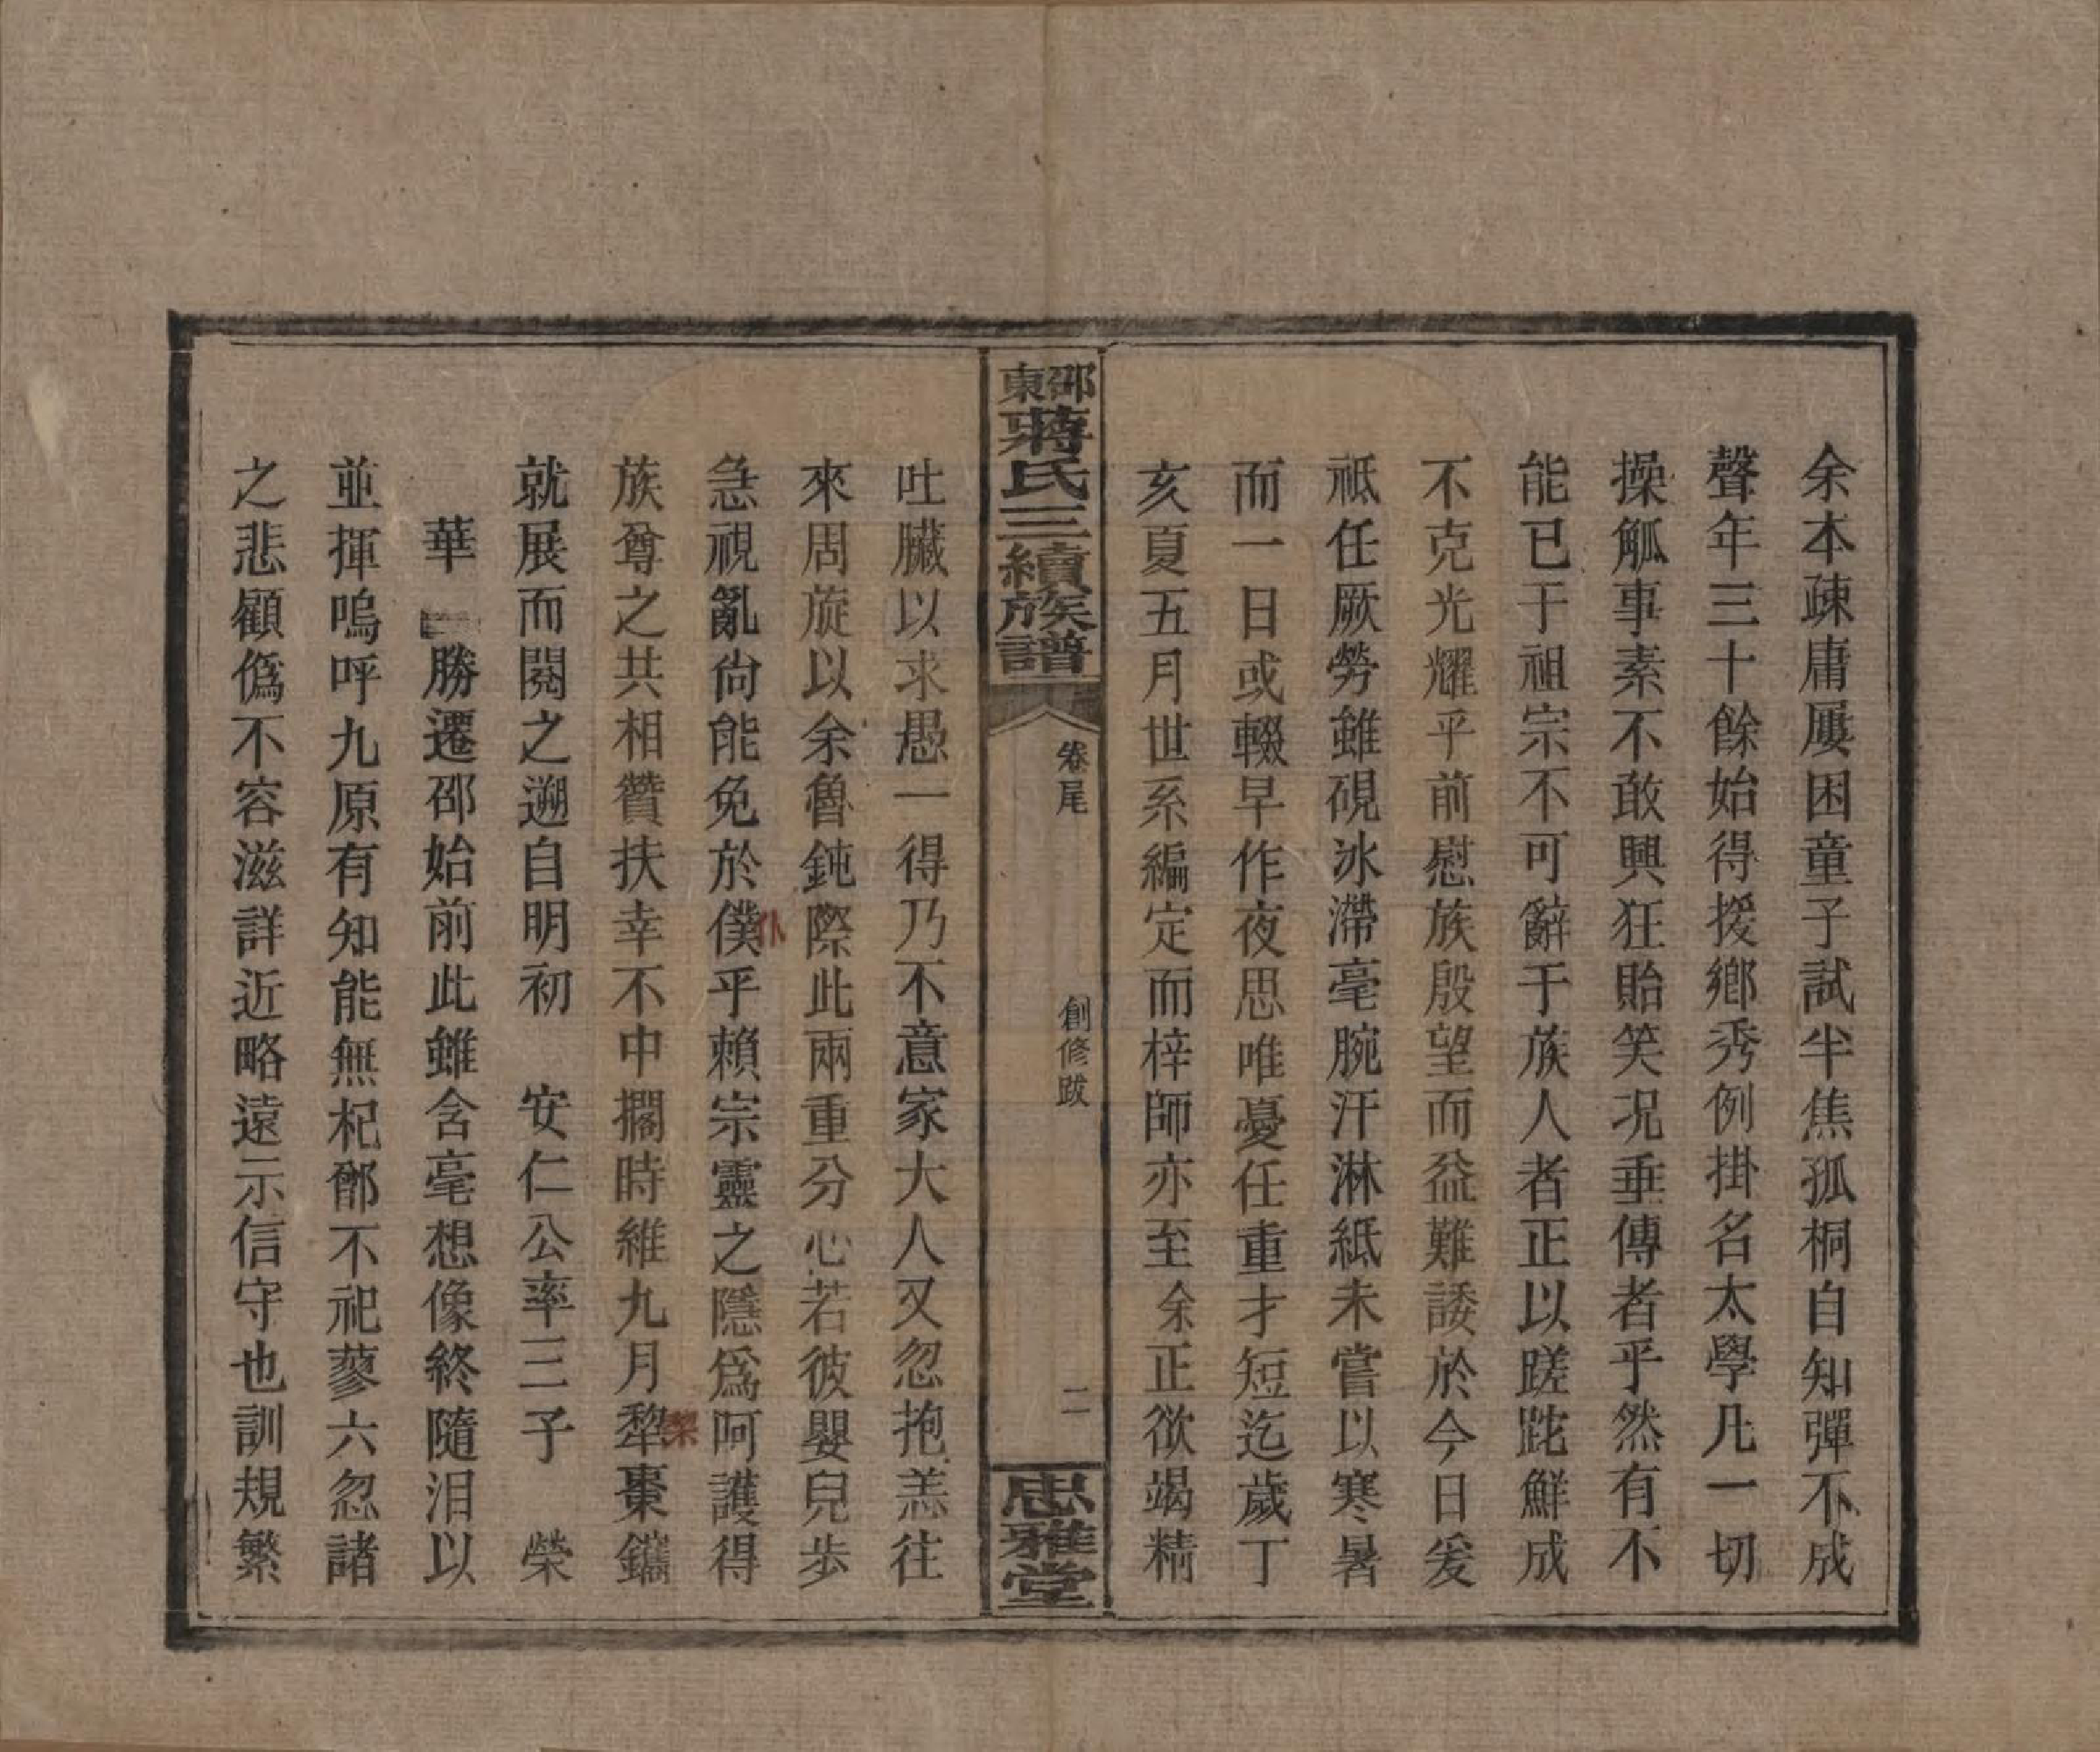 余本疎庸屢困童子試半焦孤桐自知彈不成
聲年三十餘始得援鄉秀例掛名太學凡一切
操觚事素不敢興狂貽笑况垂傳者乎然有不
能已于祖宗不可辭于族人者正以蹉跎鮮成
不克光耀乎前慰族殷望而益難諉於今日爰
祇任厥勞雖硯冰滯毫腕汗淋紙未嘗以寒暑
而一日或輟早作夜思唯憂任重才短迄歲丁
亥夏五月世系編定而梓師亦至余正欲竭精
邵東蔣氏三續族譜
卷尾
創修跋
二
忠雅堂
吐臟以求愚一得乃不意家大人又忽抱恙往
來周旋以余魯鈍際此兩重分心若彼嬰兒步
急視亂尙能免於僕乎賴宗靈之隱爲呵護得
仆
族尊之共相贊扶幸不中擱時維九月犂棗鐫
梨
就展而閱之遡自明初　安仁公率三子　榮
華　勝遷邵始前此雖含毫想像終隨泪以
並揮嗚呼九原有知能無杞鄫不祀蓼六忽諸
之悲顧僞不容滋詳近略遠示信守也訓規繁